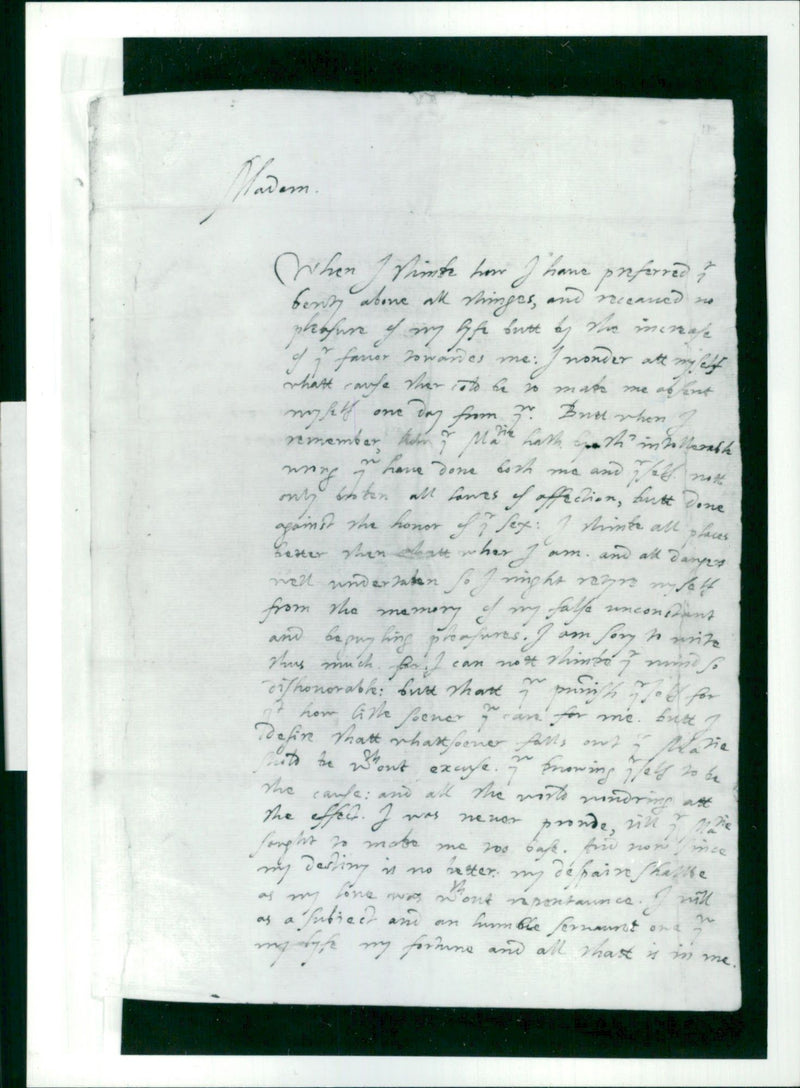 Madam.
When I thinke how I have preferred yr
bewty above all thinges, and receaved no
pleasure of my lyfe butt by the increase
of yr favor towardes me: I wonder att myself
whatt cause ther cold be to make me absent
myself one day from yu. Butt when I
remember that yr Matie hath by th intollerable
wrong yu have done both me and yrself nott
only broken all lawes of affection, butt done
against the honor of yr sex: I thinke all places
better then thatt wher I am. and all dangers
well undertaken so I might retyre myself
from the memory of my false unconstant
and beguyling pleasures. I am sory to write
thus much. for I can nott thinke yr mind so
dishonorable: butt thatt yu punish yrself for
yt how litle soever yu care for me. butt I
desire thatt whattsoever falls out yr Matie
shold be wthout excuse. yu knowing yrself to be
the cause: and all the world wondring att
the effect. I was never proude, till yr Matie
sought to make me too base. And now since
my destiny is no better: my despaire shalbe
as my love was wthout repentaunce. I will
as a subject and an humble servaunt owe yu
my lyfe my fortune and all thatt is in me.